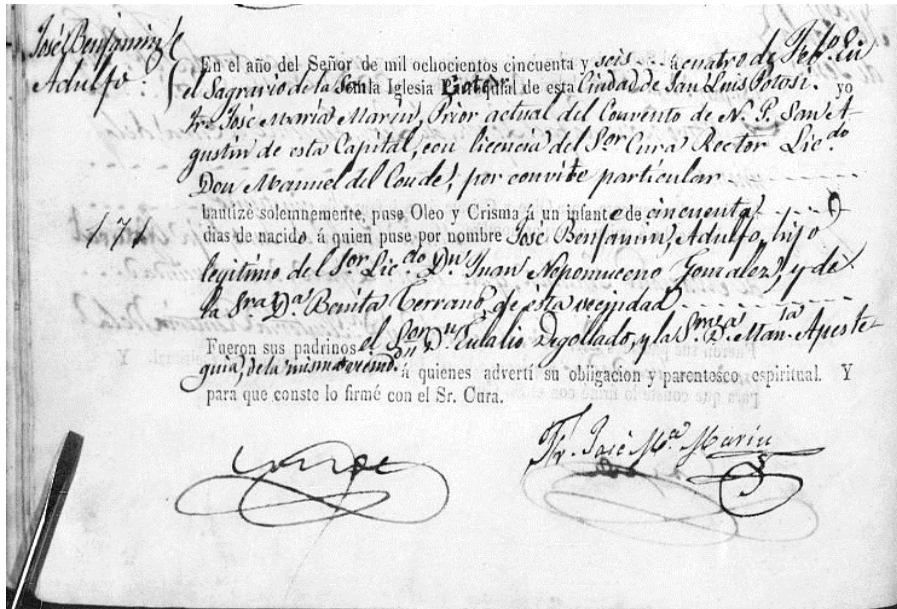 José Benjamin
Adulfo.
En el año del Señor de mil ochocientos cincuenta y seis á cuatro de Febo. En
el Sagrario de la Santa Iglesia Catedl. Parroquial de esta Ciudad de San Luis Potosí. yo
Fr. José María Marin, Prior actual del Convento de N. P. San A-
gustin de esta Capital, con licencia del Sor Cura Rector Licdo
Don Manuel del Conde, por convite particular
bautizé solemnemente, puse Oleo y Crisma á un infante de cincuenta
171
dias de nacido á quien puse por nombre José Benjamin, Adulfo, hijo
legitimo del Sor Licdo Dn Juan Nepomuceno Gonzalez, y de
la Sra Da Benita de esta vecindad
Fueron sus padrinos el Sor Dn Eulalio Degollado, y la Sra Da Mana Apeste-
guia, de la misma vecindn á quienes advertí su obligacion y parentesco espiritual. Y
para que conste lo firmé con el Sr. Cura.
Conde
Fr. José Ma Marin